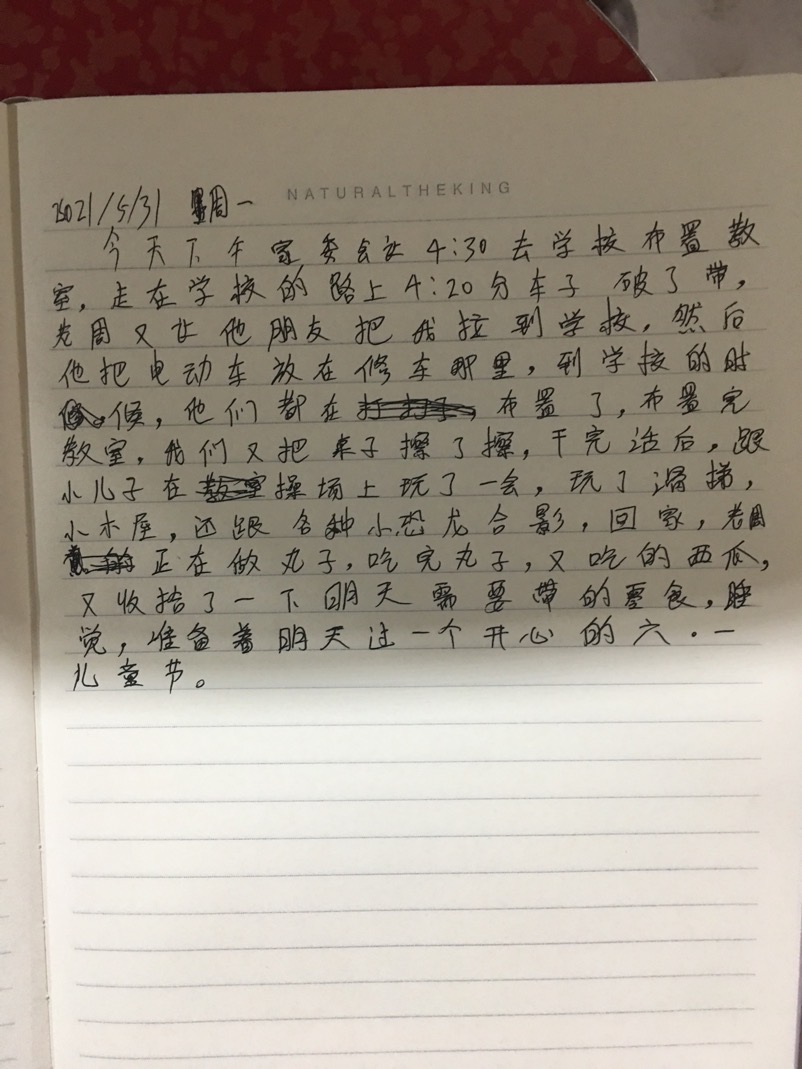 NATURALTHEKING
2021/5/31 周一
今天下午家委会让4:30去学校布置教
室,走在学校的路上4:20分车子破了带,
老周又让他朋友把我拉到学校,然后
他把电动车放在修车那里,到学校的时
候,他们都在布置了,布置完
教室,我们又把桌子擦了擦,干完活后,跟
小儿子在操场上玩了一会,玩了滑梯,
小木屋,还跟各种小恐龙合影,回家,老周
正在做丸子,吃完丸子,又吃的西瓜,
又收拾了一下明天需要带的零食,睡
觉,准备着明天过一个开心的六·一
儿童节。